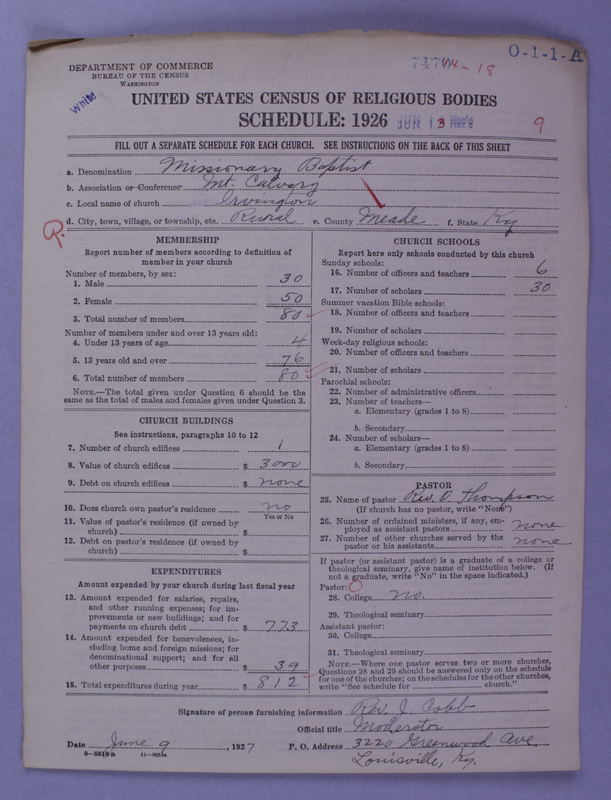 O-1-1-A
DEPARTMENT OF COMMERCE
BUREAU OF THE CENSUS
WASHINGTON
04-18
White
UNITED STATES CENSUS OF RELIGIOUS BODIES
SCHEDULE: 1926
JUN 13
9
FILL OUT A SEPARATE SCHEDULE FOR EACH CHURCH. SEE INSTRUCTIONS ON THE BACK OF THIS SHEET
a. Denomination Missionary Baptist
b. Association or Conference Mt. Calvary
c. Local name of church Irvington
d. City, town, village, or township, etc. Rural e. County Meade f. State Ky
MEMBERSHIP
Report number of members according to definition of
member in your church
Number of members, by sex:
1. Male 30
2. Female 50
3. Total number of members 80
Number of members under and over 13 years old:
4. Under 13 years of age 4
5. 13 years old and over 76
6. Total number of members 80
NOTE.—The total given under Question 6 should be
same as the total of males and females given under Question 3.
CHURCH BUILDINGS
See instructions, paragraphs 10 to 12
7. Number of church edifices 1
8. Value of church edifices $ 3000
9. Debt on church edifices $ none
10. Does church own pastor's residence no
Yes or No
11. Value of pastor's residence (if owned by
church) $
12. Debt on pastor's residence (if owned by
church) $
EXPENDITURES
Amount expended by your church during last fiscal year
13. Amount expended for salaries, repairs,
and other running expenses; for im-
provements or new buildings; and for
payments on church debt $ 773
14. Amount expended for benevolences, in-
cluding home and foreign missions; for
denominational support; and for all
other purposes $ 39
15. Total expenditures during year $ 812
CHURCH SCHOOLS
Report here only schools conducted by this church
Sunday schools:
16. Number of officers and teachers 6
17. Number of scholars 30
Summer vacation Bible schools:
18. Number of officers and teachers
19. Number of scholars
Week-day religious schools:
20. Number of officers and teachers
21. Number of scholars
Parochial schools:
22. Number of administrative officers
23. Number of teachers—
a. Elementary (grades 1 to 8)
b. Secondary
24. Number of scholars—
a. Elementary (grades 1 to 8)
b. Secondary
PASTOR
25. Name of pastor Rev. O. Thompson
(If church has no pastor, write "None")
26. Number of ordained ministers, if any, em-
ployed as assistant pastors none
27. Number of other churches served by the
pastor or his assistants none
If pastor (or assistant pastor) is a graduate of a college or
theological seminary, give name of institution below. (If
not a graduate, write "No" in the space indicated.)
Pastor:
28. College no.
29. Theological seminary
Assistant pastor:
30. College
31. Theological seminary
NOTE.—Where one pastor serves two or more churches,
Questions 28 and 29 should be answered only on the schedule
for one of the churches; on the schedules for the other churches,
write "See schedule for church."
Signature of person furnishing information Rev. J. Cobb
Official title Moderator
Date June 9, 1927 P. O. Address 3220 Greenwood Ave
Louisville, Ky.